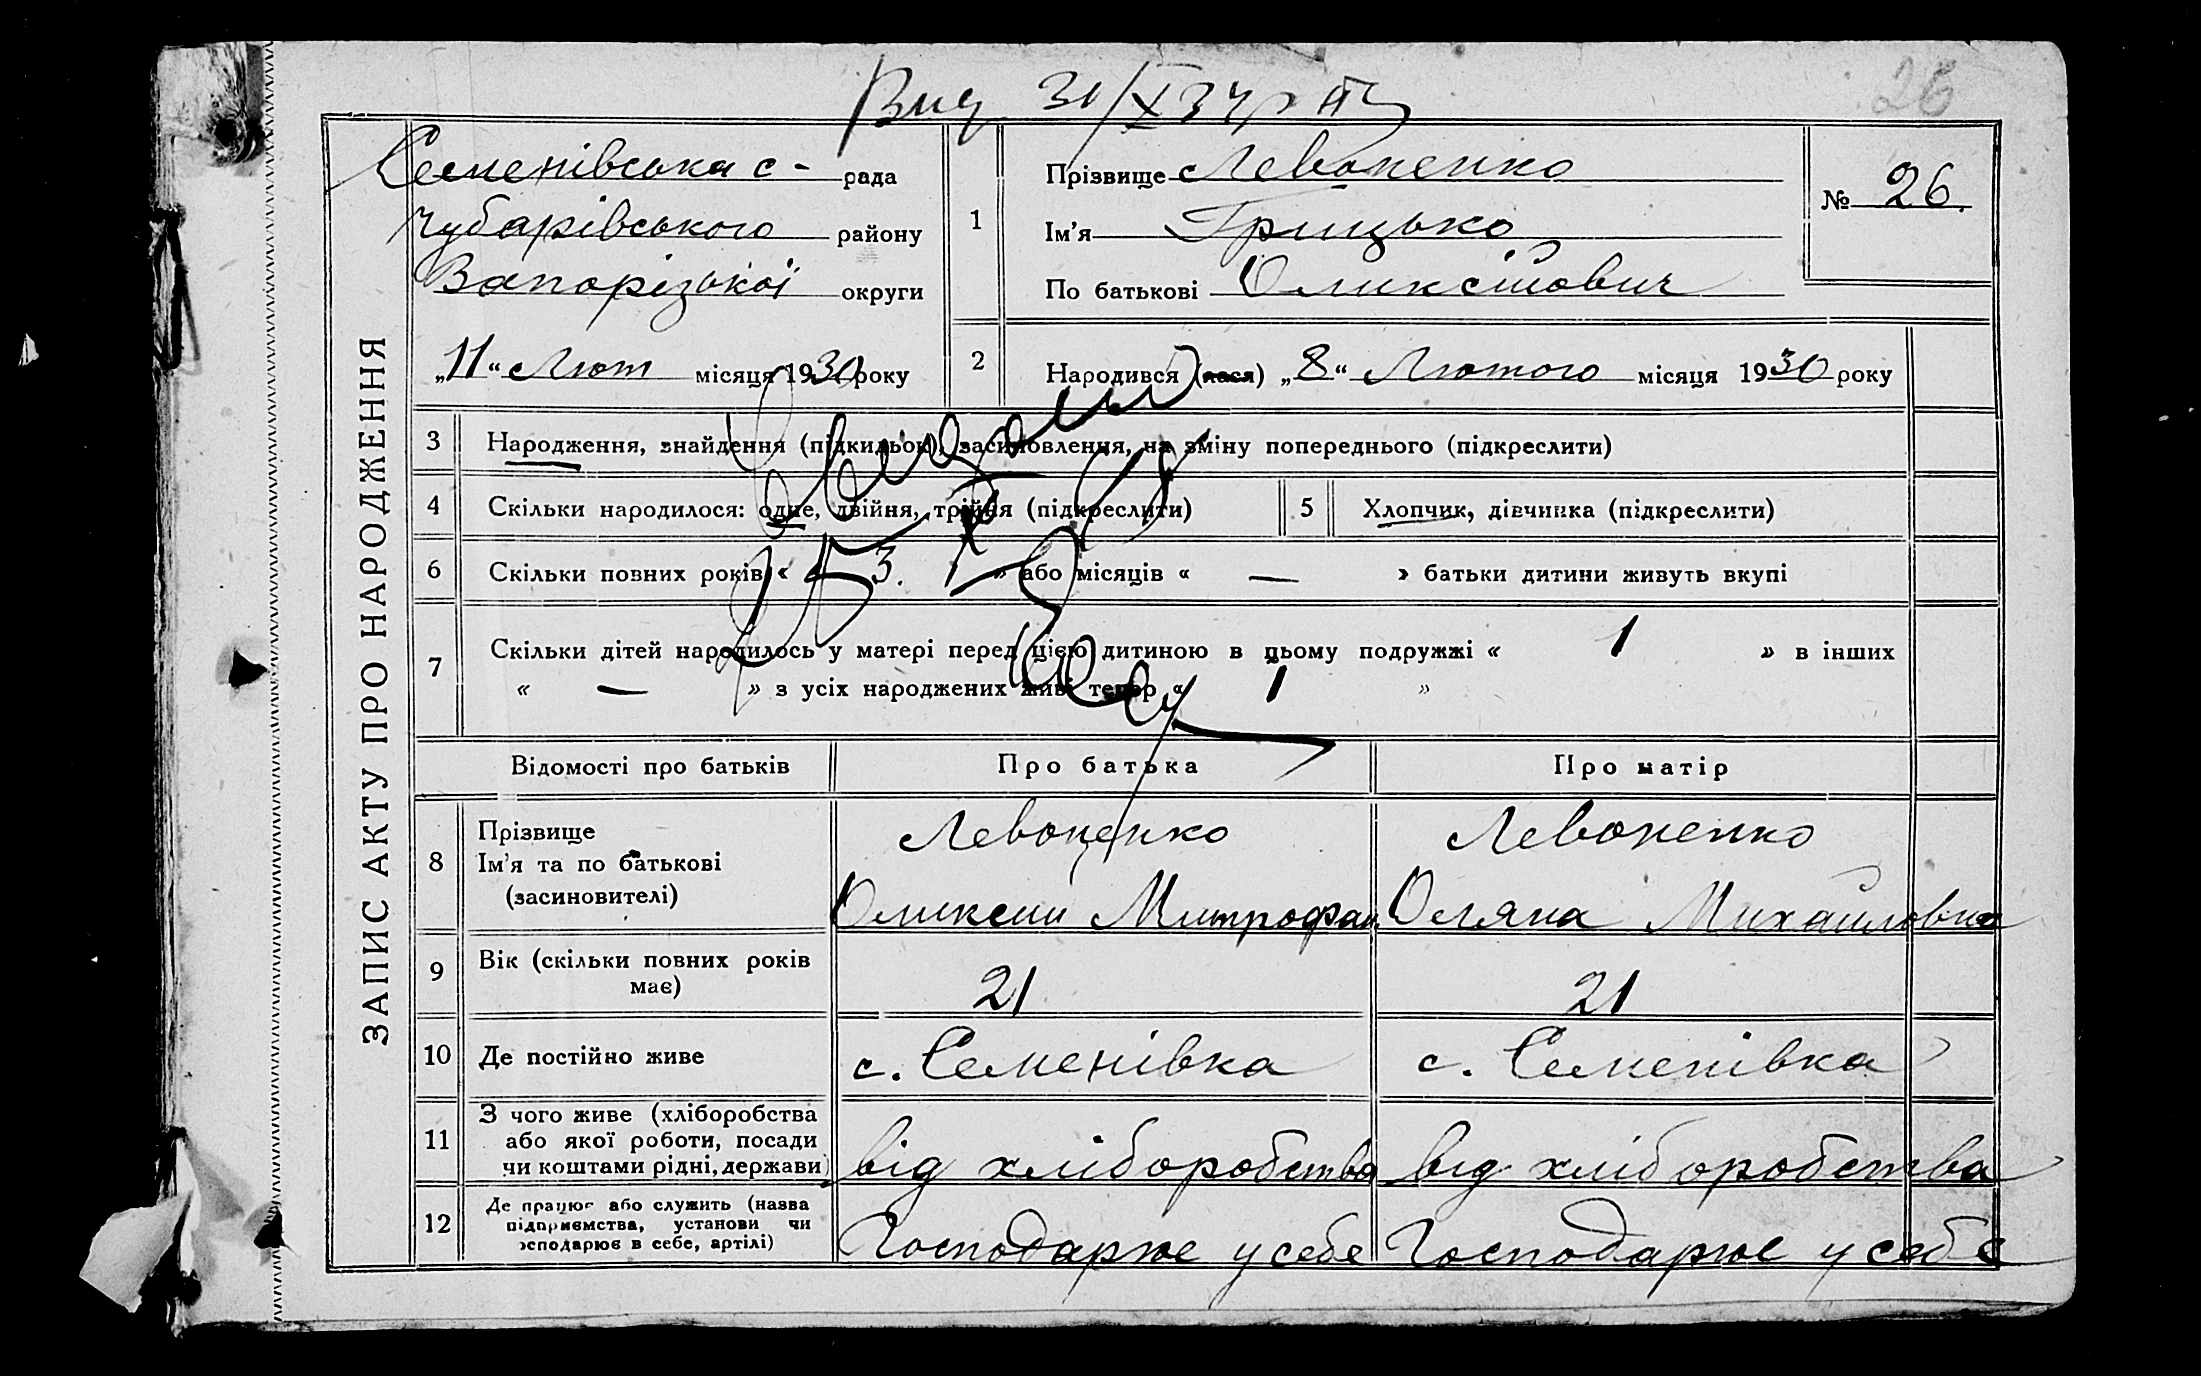 26
Вид 31/X 34р
ЗАПИС АКТУ ПРО НАРОДЖЕННЯ
Семенівська с - рада
Чубарівського району
Запорізької округи
„11“ Лют місяця 1930 року
1 Прізвище Левоненко
Ім'я Грицько
По батькові Оликсійович
№ 26.
2 Народився (лася) „8“ Лютого місяця 1930 року
3 Народження, знайдення (підкидьок), засиновлення, на зміну попереднього (підкреслити)
4 Скільки народилося: одне, двійня, трійня (підкреслити)
5 Хлопчик, дівчинка (підкреслити)
6 Скільки повних років « 3. » або місяців « — » батьки дитини живуть вкупі
7 Скільки дітей народилось у матері перед цією дитиною в цьому подружжі « 1 » в інших
« — » з усіх народжених живі тепер « 1 »
Відомості про батьків Про батька Про матір
8 Прізвище
Ім'я та по батькові
(засиновителі)
Левоненко
Оликсий Митрофан.
Левоненко
Оляна Михайловна
9 Вік (скільки повних років
має)
21
21
10 Де постійно живе
с. Семенівка
с. Семенівка
11 З чого живе (хліборобства
або якої роботи, посади
чи коштами рідні, держави)
від хліборобства
від хліборобства
12 Де працює або служить (назва
підприємства, установи чи
осподарює в себе, артілі)
Господарює у себе
Господарює у себе